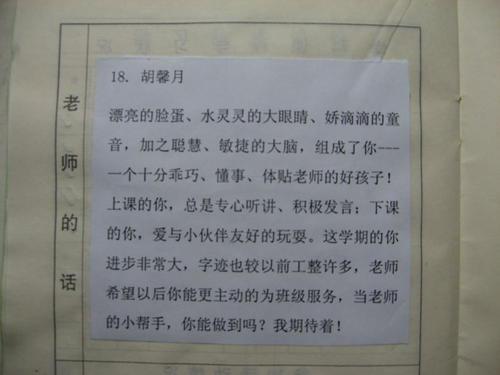 老师的话
18. 胡馨月
漂亮的脸蛋、水灵灵的大眼睛、娇滴滴的童
音，加之聪慧、敏捷的大脑，组成了你---
一个十分乖巧、懂事、体贴老师的好孩子！
上课的你，总是专心听讲、积极发言；下课
的你，爱与小伙伴友好的玩耍。这学期的你
进步非常大，字迹也较以前工整许多，老师
希望以后你能更主动的为班级服务，当老师
的小帮手，你能做到吗？我期待着！